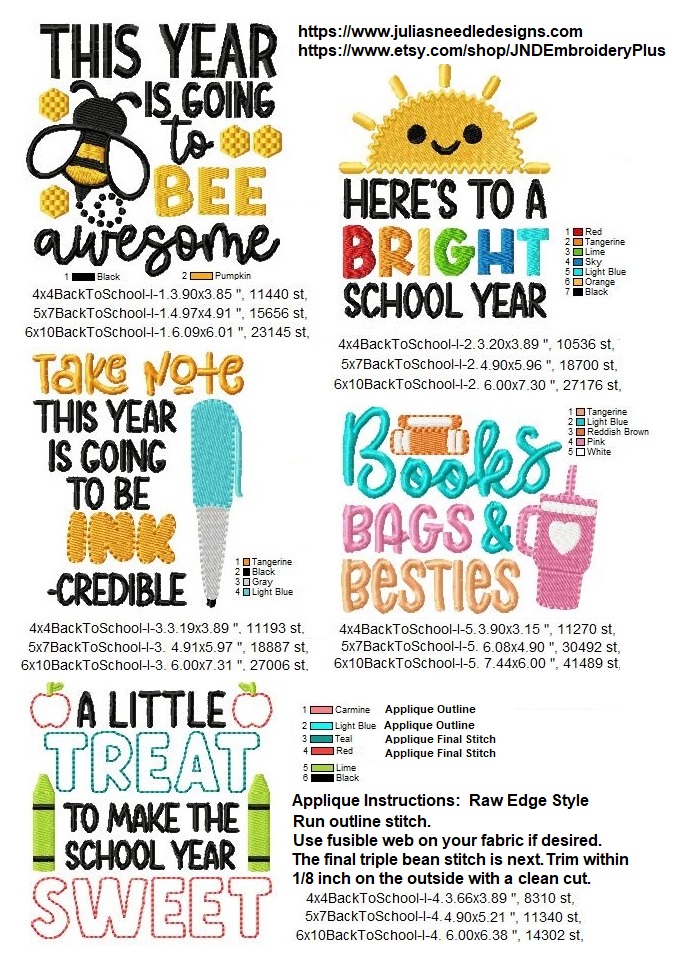 https://www.juliasneedledesigns.com
https://www.etsy.com/shop/JNDEmbroideryPlus
THIS YEAR
IS GOING
to
BEE
awesome
1 Black 2 Pumpkin
4x4BackToSchool-I-1.3.90x3.85 ", 11440 st,
5x7BackToSchool-I-1.4.97x4.91 ", 15656 st,
6x10BackToSchool-I-1.6.09x6.01 ", 23145 st,
HERE'S TO A
BRIGHT
SCHOOL YEAR
1 Red
2 Tangerine
3 Lime
4 Sky
5 Light Blue
6 Orange
7 Black
4x4BackToSchool-I-2. 3.20x3.89 ", 10536 st,
5x7BackToSchool-I-2. 4.90x5.96 ", 18700 st,
6x10BackToSchool-I-2. 6.00x7.30 ", 27176 st,
Take Note
THIS YEAR
IS GOING
TO BE
INK
-CREDIBLE
1 Tangerine
2 Black
3 Gray
4 Light Blue
4x4BackToSchool-I-3.3.19x3.89 ", 11193 st,
5x7BackToSchool-I-3. 4.91x5.97 ", 18887 st,
6x10BackToSchool-I-3. 6.00x7.31 ", 27006 st,
Books
BAGS &
BESTIES
1 Tangerine
2 Light Blue
3 Reddish Brown
4 Pink
5 White
4x4BackToSchool-I-5. 3.90x3.15 ", 11270 st,
5x7BackToSchool-I-5. 6.08x4.90 ", 30492 st,
6x10BackToSchool-I-5. 7.44x6.00 ", 41489 st,
A LITTLE
TREAT
TO MAKE THE
SCHOOL YEAR
SWEET
1 Carmine Applique Outline
2 Light Blue Applique Outline
3 Teal Applique Final Stitch
4 Red Applique Final Stitch
5 Lime
6 Black
Applique Instructions: Raw Edge Style
Run outline stitch.
Use fusible web on your fabric if desired.
The final triple bean stitch is next. Trim within
1/8 inch on the outside with a clean cut.
4x4BackToSchool-I-4. 3.66x3.89 ", 8310 st,
5x7BackToSchool-I-4. 4.90x5.21 ", 11340 st,
6x10BackToSchool-I-4. 6.00x6.38 ", 14302 st,